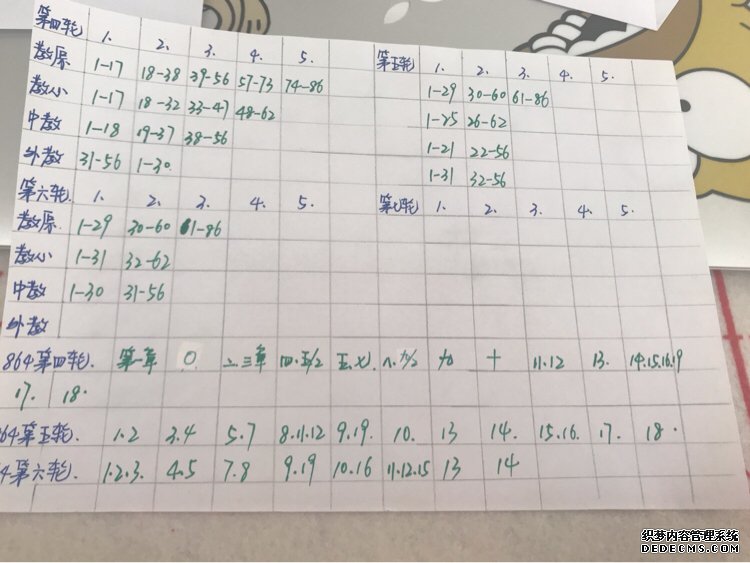 第四轮 1. 2. 3. 4. 5.
教原 1-17 18-38 39-56 57-73 74-86
教心 1-17 18-32 33-47 48-62
中教 1-18 19-37 38-56
外教 31-56 1-30
第五轮 1. 2. 3. 4. 5.
1-29 30-60 61-86
1-25 26-62
1-21 22-56
1-31 32-56
第六轮 1. 2. 3. 4. 5.
教原 1-29 30-60 61-86
教心 1-31 32-62
中教 1-30 31-56
外教
第七轮 1. 2. 3. 4. 5.
864第四轮. 第一章 二.三章 四.五/2 五.七 八.九/2 九 十 11.12 13. 14.15.16.19
17. 18.
64第五轮. 1.2 3.4 5.7 8.11.12 9.19. 10. 13 14. 15.16. 17. 18.
4第六轮. 1.2.3. 4.5 7.8 9.19 10.16 11.12.15 13 14
织梦内容管理系统
DEDECMS.COM